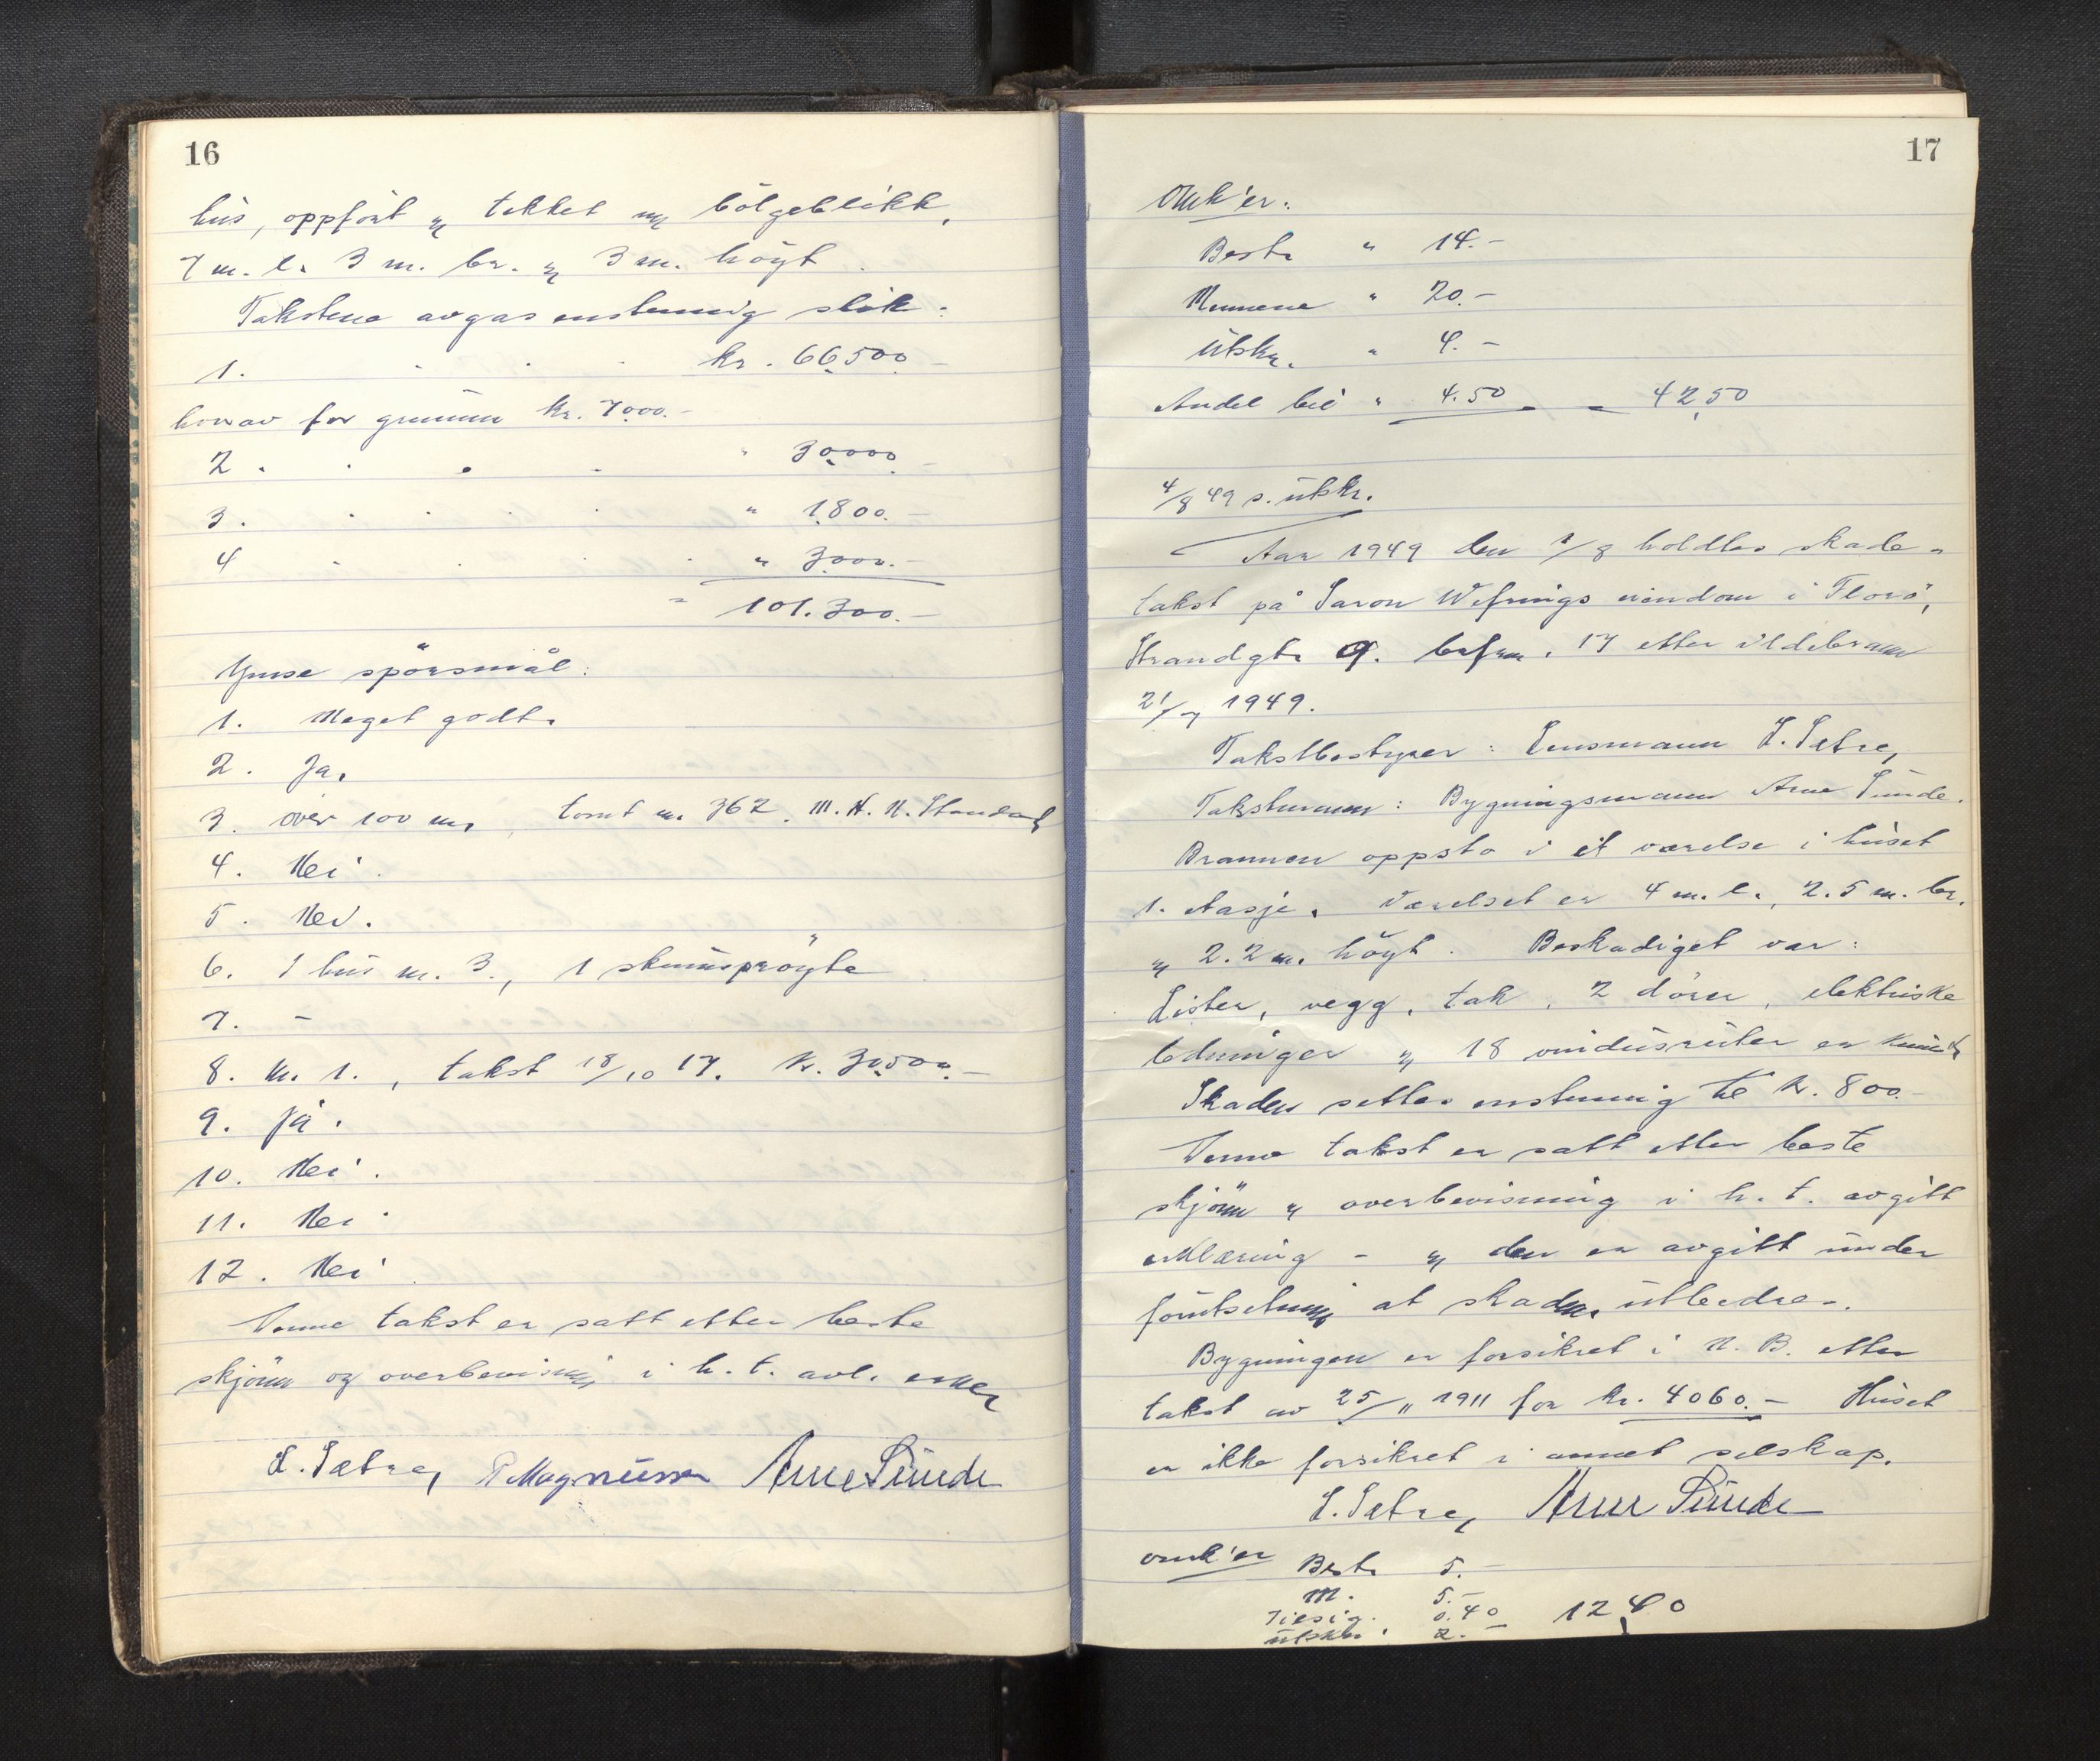 16
hus, oppført og tekket m/ bölgeblikk,
7 m. l. 3 m. br. og 3 m. höyt.
Takstene avgas enstemmig slik:
1. kr. 66500.-
hvorav for grunnm kr. 7000.-
2. " 30000.-
3. " 1800.-
4 " 3000.-
" 101.300.-
Ymse spörsmål:
1. Meget godt.
2. Ja.
3. over 100 m, tomt nr. 362.
4. Nei.
5. Nei.
6. I hus nr. 3, 1 skumspröyte
7. -
8. Nr. 1., takst 18/10 17. kr. 30500.-
9. Ja.
10. Nei.
11. Nei.
12. Nei.
Denne takst er satt etter beste
skjönn og overbevisning i h. t. avl.
L. Sætre, P Magnussen Arne Sunde
17
Omk'er:
Best. " 14.-
Mennene " 20.-
Utskr. " 4.-
Andel bil " 4.50 - 42,50
4/8 49 s. utskr.
Aar 1949 den 1/8 holdtes skade-
takst på Saron Wefrings eiendom i Florö,
Strandgt. 9. brfnr. 17 etter ildebrann
21/7 1949.
Takstbestyrer: Lensmann L. Sætre,
Takstmann: Bygningsmann Arne Sunde.
Brannen oppsto i et værelse i huset
1. etasje. Værelset er 4 m. l., 2.5 m. br.
og 2.2 m. höyt. Beskadiget var:
Lister, vegg, tak, 2 dörer, elektriske
ledninger og 18 vindusruter er knust
Skaden settes enstemmig til kr. 800.-
Denne takst er satt etter beste
skjönn og overbevisning i h. t. avgitt
erklæring - og den er avgitt under
forutsetning at skaden utbedres.
Bygningen er forsikret i N. B. etter
takst av 25/11 1911 for kr. 4060.- Huset
er ikke forsikret i annet selskap.
L. Sætre, Arne Sunde
omk'er Best. 5.-
M. 5.-
Tilsig. 0.40 12,40
utskr. 2.-